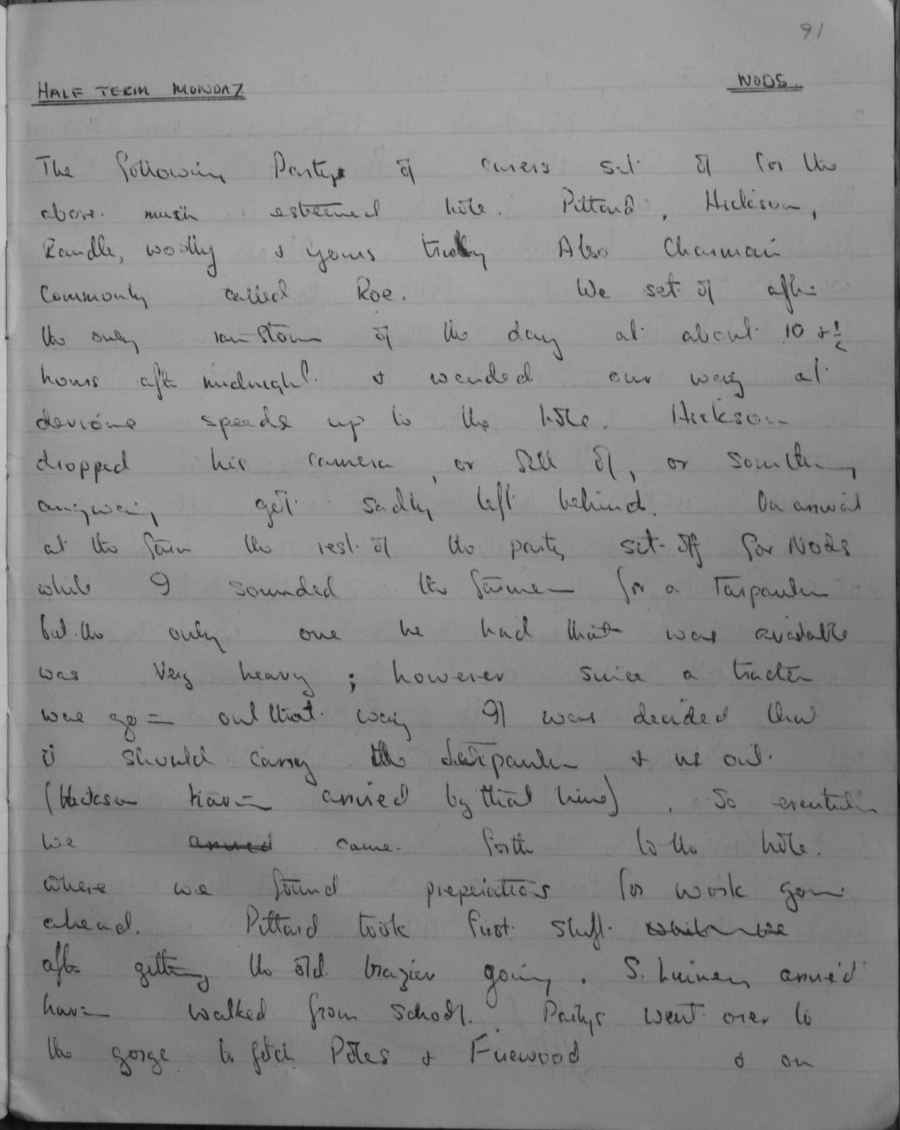 91
HALF TERM MONDAY NODS
The following Partys of cavers set of for the
above much esteemed hole. Pittard, Hickson,
Randle, woolly & yours truly Also Chairman
Commonly called Roe. We set of after
the only rainstorm of the day at about 10 + ½
hours after midnight. & wended our way at
deviōus speeds up to the hole. Hickson
dropped his camera, or fell of, or something
anyway got sadly left behind. On arrival
at the farm the rest of the party set off for NODS
while I sounded the farmer for a Tarpaulin
but the only one he had that was available
was Very heavy ; however since a tractor
was going out that way It was decided that
it should carry the tarpaulin & us out.
(Hickson having arrived by that time). So eventually
we arrived came forth to the hole.
where we found preperations for work going
ahead. Pittard took first shift
after getting the old brazier going. S. arrived
having walked from School. Partys went over to
the gorge to fetch Poles & Firewood & on